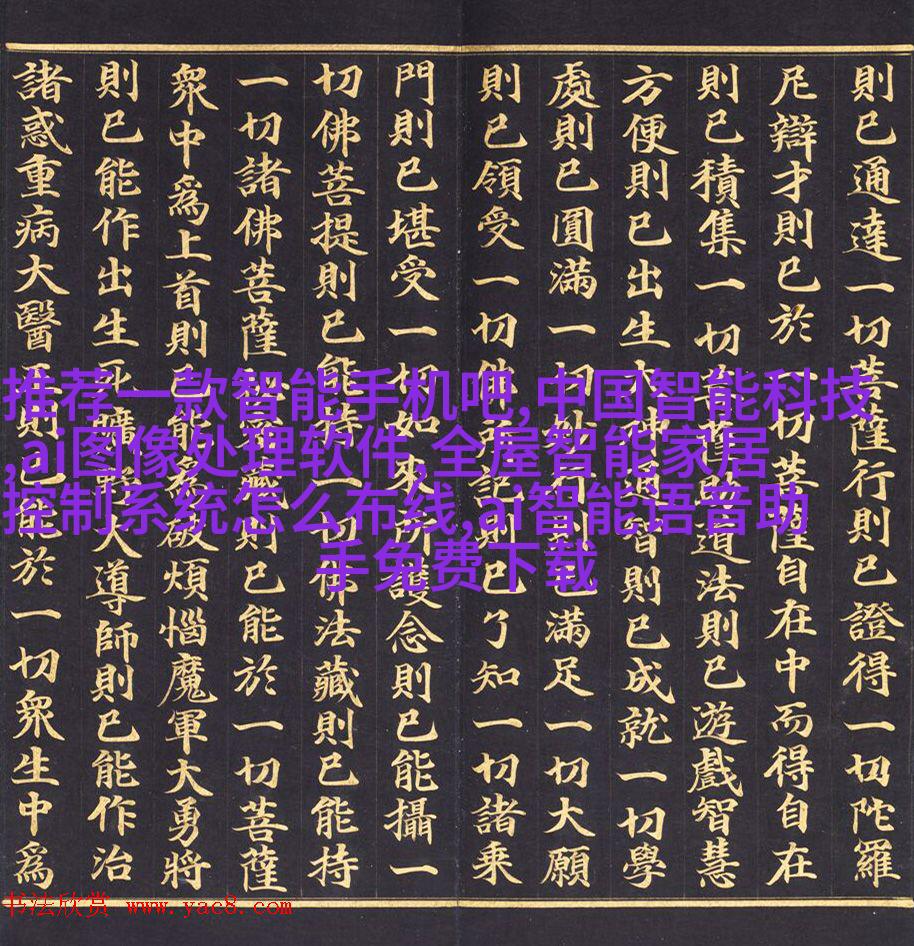 則已通達一切菩薩行則已證得一切陀羅
尼辯才則已於一切菩薩自在中而得自在
則已積集一切菩薩助道法則已遊戲智慧
方便則已出生大神通智則已成就一切學
處則已圓滿一切妙行則已滿足一切大願
則已領受一切佛所記則已了知一切諸乘
門則已堪受一切如來所護念則已能攝一
切佛菩提則已能持一切佛法藏則已能持
一切諸佛菩薩秘密藏則已能於一切菩薩
衆中爲上首則已能爲破煩惱魔軍大勇將
則已能作出生死曠野大導師則已能作治
諸惑重病大醫王則已能於一切衆生中爲
推荐一款智能手机吧,中国智能科技
,ai图像处理软件,全屋智能家居
控制系统怎么布线,ai智能语音助
手免费下载
书法欣赏 www.yac8.com